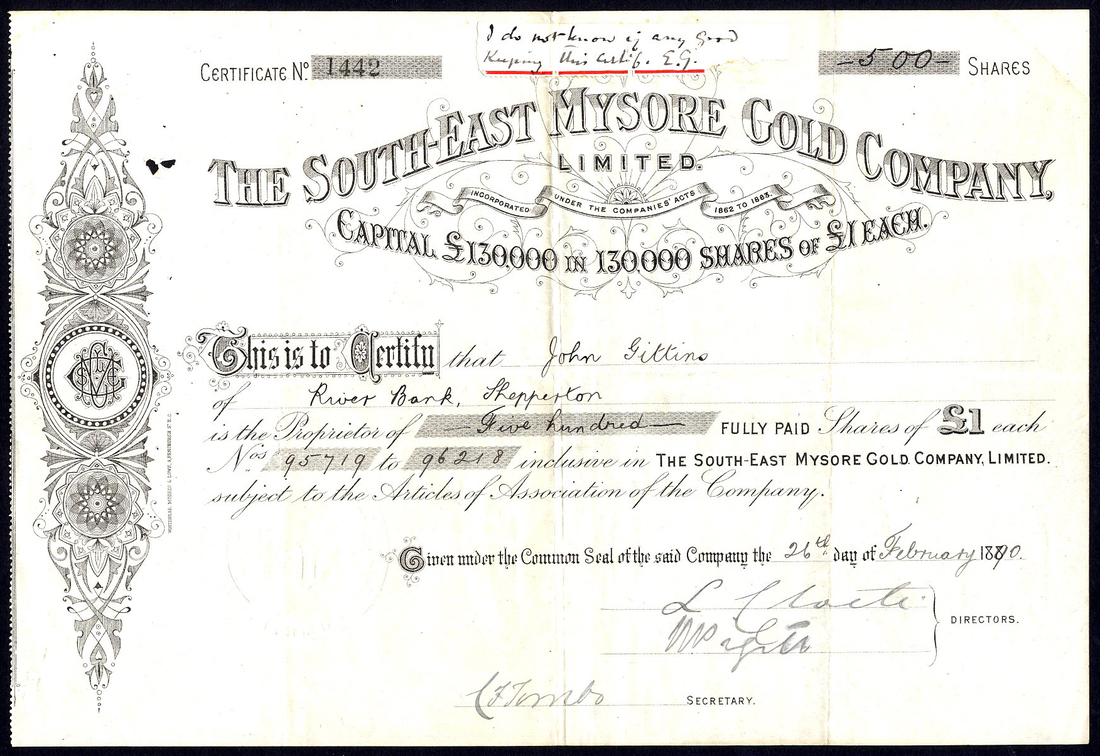 I do not know if any good
Keeping this certif. E.G.
CERTIFICATE No. 1442
-500- SHARES
THE SOUTH-EAST MYSORE GOLD COMPANY,
LIMITED.
INCORPORATED UNDER THE COMPANIES' ACTS 1862 TO 1883.
CAPITAL £130,000 IN 130,000 SHARES OF £1 EACH.
This is to Certify that John Gittins
of River Bank, Shepperton
is the Proprietor of —Five hundred— FULLY PAID Shares of £1 each
Nos 95719 to 96218 inclusive in THE SOUTH-EAST MYSORE GOLD COMPANY, LIMITED.
subject to the Articles of Association of the Company.
Given under the Common Seal of the said Company the 26th day of February 1890.
DIRECTORS.
SECRETARY.